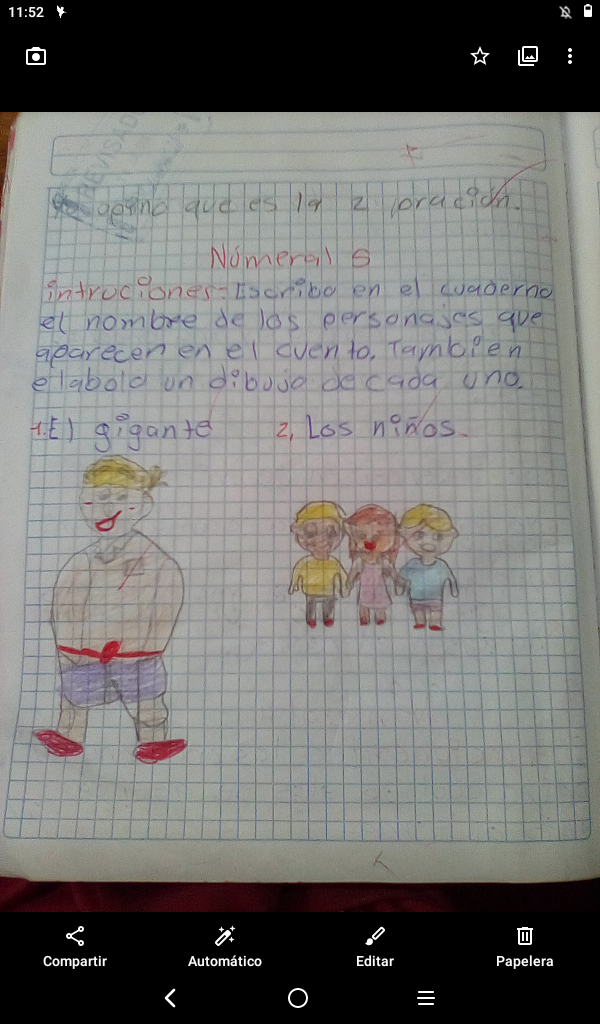 11:52
REVISADO
opino que es la 2 oración.
Númeral 5
intruciones: Escribo en el cuaderno
el nombre de los personajes que
aparecen en el cuento. Tambien
elabolo un dibujo de cada uno.
1. El gigante 2. Los niños.
Compartir Automático Editar Papelera